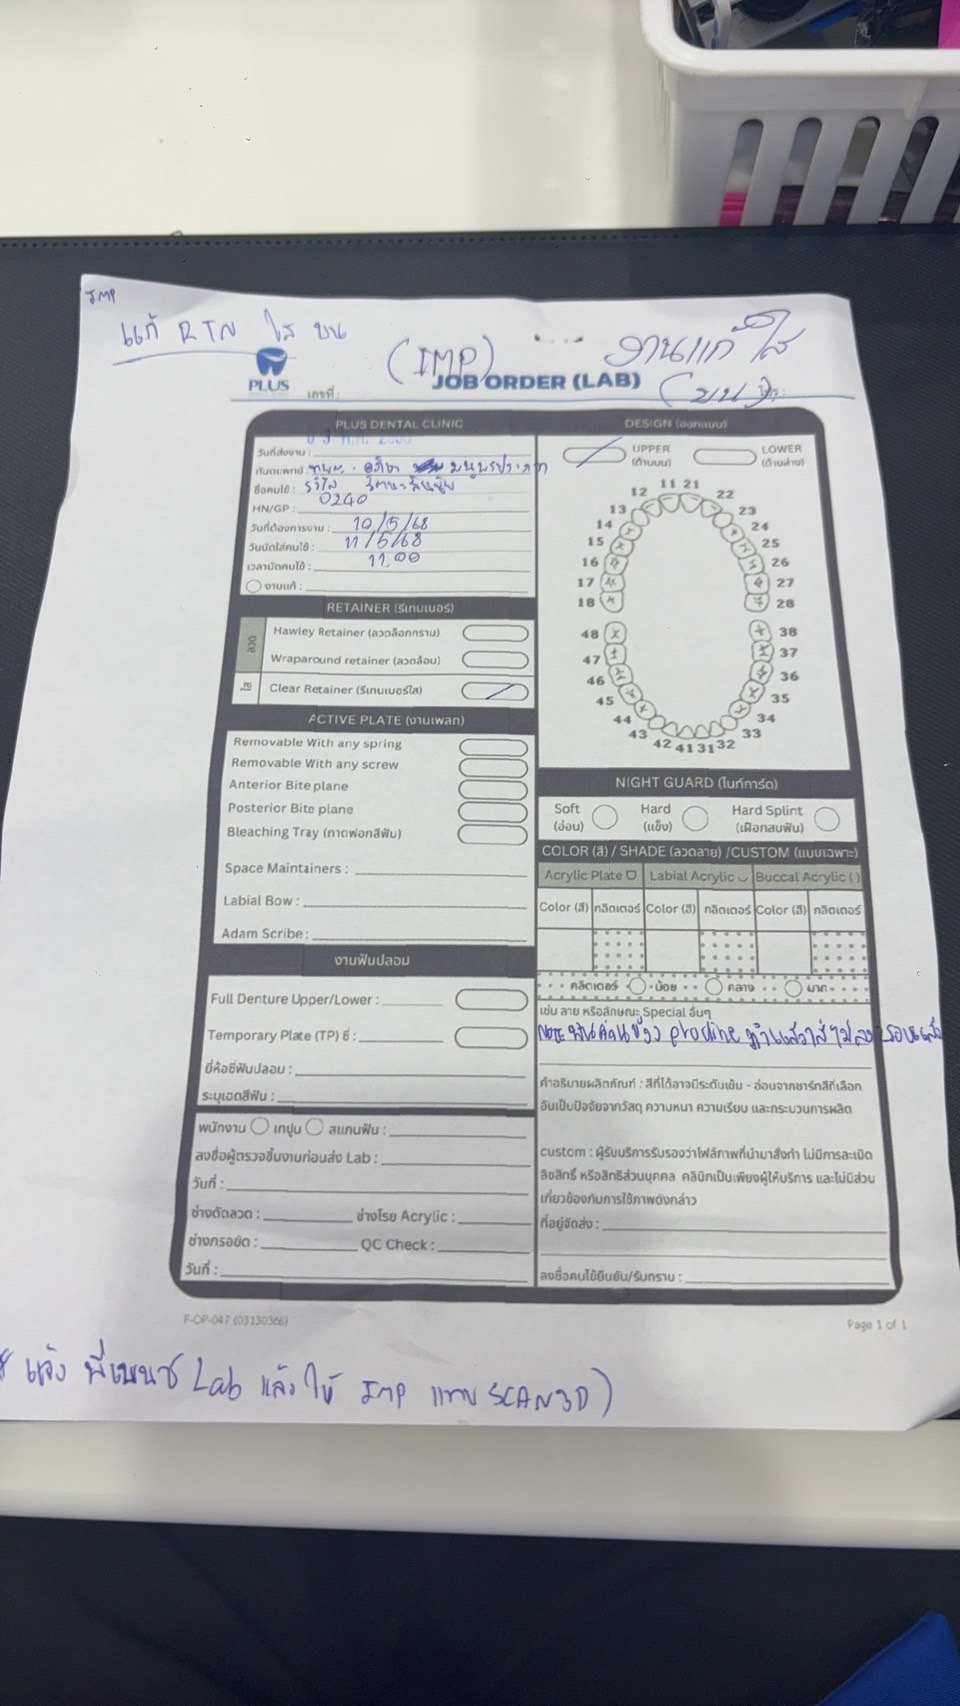 IMP
แก้ RTN ใส บน
(IMP)
งานแก้ ใส
(บน)
PLUS
JOB ORDER (LAB)
เลขที่ :
โทร :
PLUS DENTAL CLINIC
วันที่ส่งงาน :
ทันตแพทย์ :
ชื่อคนไข้ :
HN/GP : 0240
วันที่ต้องการงาน : 10/5/68
วันนัดใส่คนไข้ : 11/5/68
เวลานัดคนไข้ : 11.00
งานแก้ :
RETAINER (รีเทนเนอร์)
ลวด
Hawley Retainer (ลวดล็อกกราม)
Wraparound retainer (ลวดล้อม)
ใส
Clear Retainer (รีเทนเนอร์ใส)
ACTIVE PLATE (งานเพลท)
Removable With any spring
Removable With any screw
Anterior Bite plane
Posterior Bite plane
Bleaching Tray (ถาดฟอกสีฟัน)
Space Maintainers :
Labial Bow :
Adam Scribe :
งานฟันปลอม
Full Denture Upper/Lower :
Temporary Plate (TP) ซี่ :
ยี่ห้อซี่ฟันปลอม :
ระบุเฉดสีฟัน :
พนักงาน เทปูน สแกนฟัน :
ลงชื่อผู้ตรวจชิ้นงานก่อนส่ง Lab :
วันที่ :
ช่างดัดลวด : ช่างโรย Acrylic :
ช่างกรอขัด : QC Check :
วันที่ :
DESIGN (ออกแบบ)
UPPER (ด้านบน)
LOWER (ด้านล่าง)
11 21
12 22
13 23
14 24
15 25
16 26
17 27
18 28
48 38
47 37
46 36
45 35
44 34
43 33
42 41 31 32
NIGHT GUARD (ไนท์การ์ด)
Soft (อ่อน)
Hard (แข็ง)
Hard Splint (เฝือกสบฟัน)
COLOR (สี) / SHADE (ลวดลาย) /CUSTOM (แบบเฉพาะ)
Acrylic Plate Labial Acrylic Buccal Acrylic ( )
Color (สี) กลิตเตอร์ Color (สี) กลิตเตอร์ Color (สี) กลิตเตอร์
กลิตเตอร์ น้อย กลาง มาก
เช่น ลาย หรือลักษณะ Special อื่นๆ
คำอธิบายผลิตภัณฑ์ : สีที่ได้อาจมีระดับเข้ม - อ่อนจากชาร์ทสีที่เลือก
อันเป็นปัจจัยจากวัสดุ ความหนา ความเรียบ และกระบวนการผลิต
custom : ผู้รับบริการรับรองว่าไฟล์ภาพที่นำมาสั่งทำ ไม่มีการละเมิด
ลิขสิทธิ์ หรือสิทธิส่วนบุคคล คลินิกเป็นเพียงผู้ให้บริการ และไม่มีส่วน
เกี่ยวข้องกับการใช้ภาพดังกล่าว
ที่อยู่จัดส่ง :
ลงชื่อคนไข้ยืนยัน/รับทราบ :
F-OP-047 (03130366)
Page 1 of 1
แจ้ง พี่เบนซ์ Lab แล้ว ให้ IMP แทน SCAN3D)